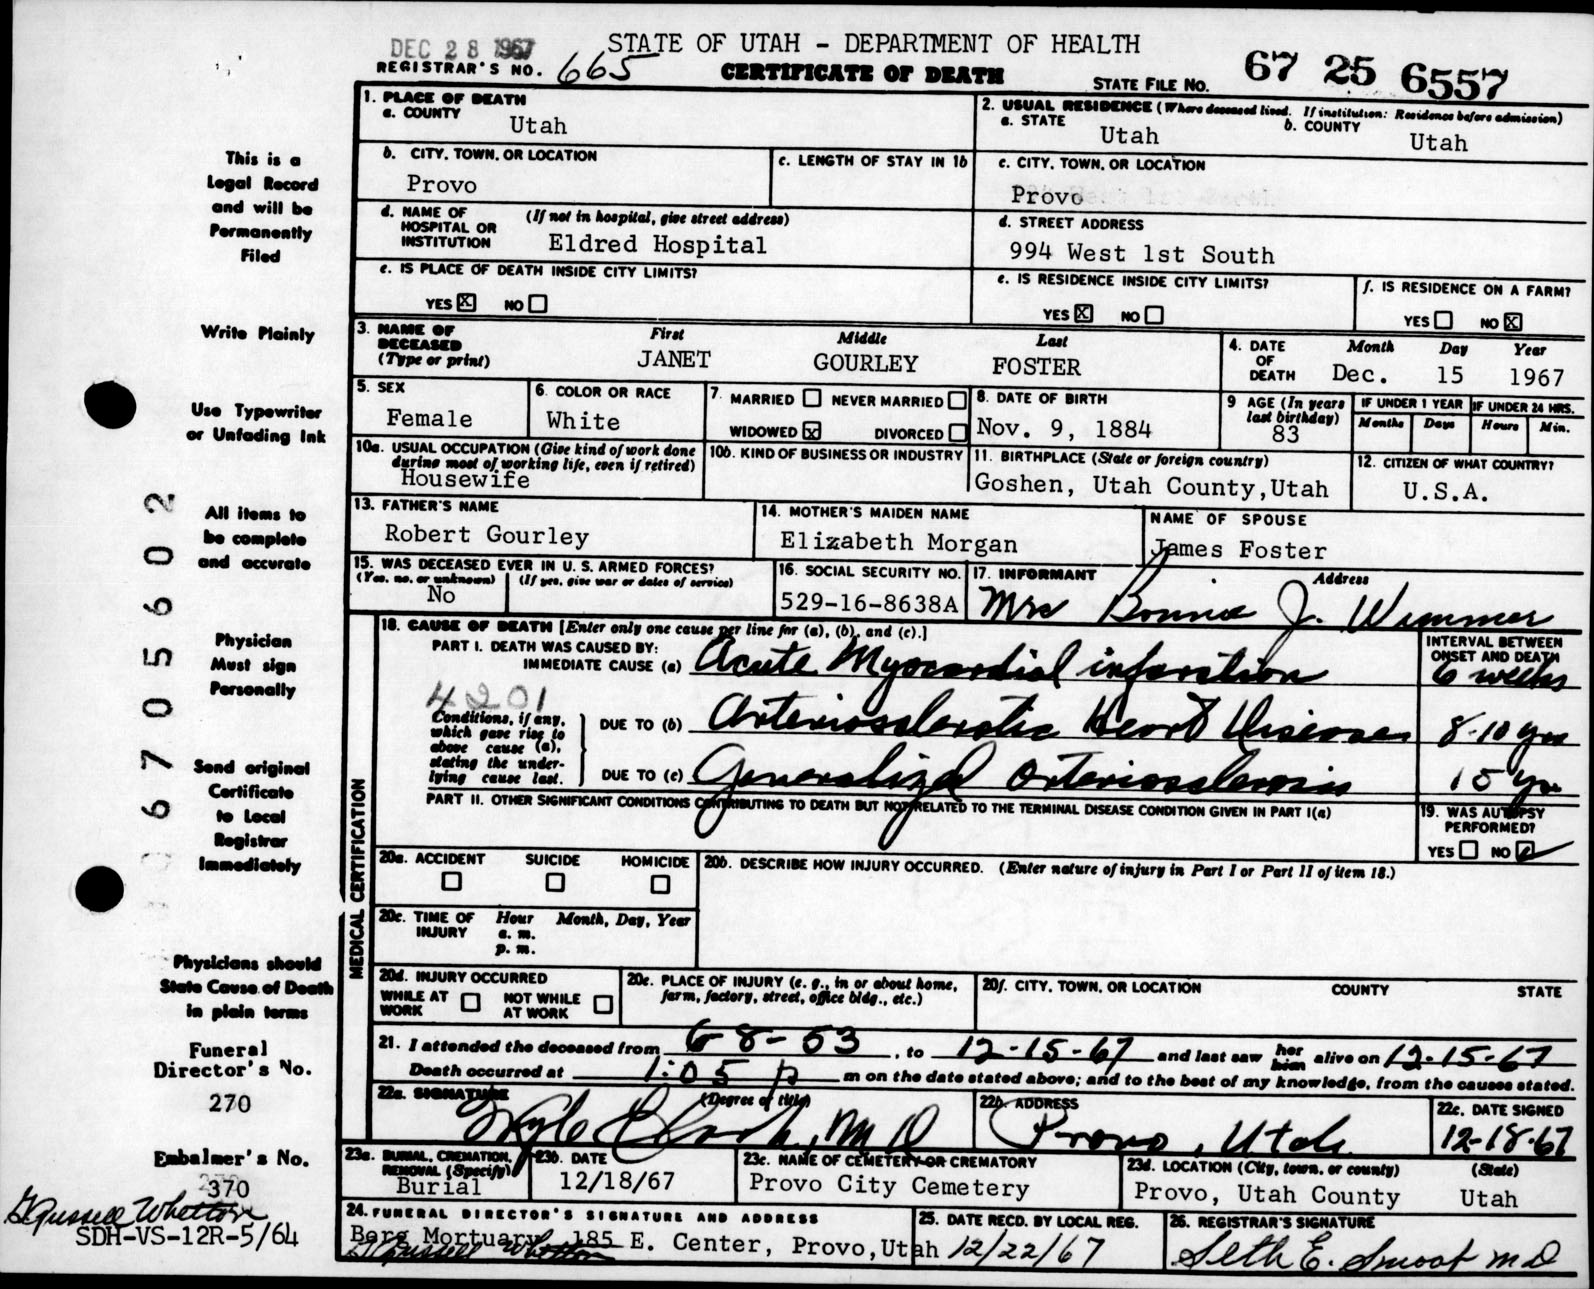 DEC 28 1967
STATE OF UTAH - DEPARTMENT OF HEALTH
REGISTRAR'S NO. 665
CERTIFICATE OF DEATH
STATE FILE NO. 67 25 6557
1. PLACE OF DEATH
a. COUNTY
Utah
2. USUAL RESIDENCE (Where deceased lived. If institution: Residence before admission)
a. STATE
Utah
b. COUNTY
Utah
b. CITY, TOWN, OR LOCATION
Provo
c. LENGTH OF STAY IN 1b
c. CITY, TOWN, OR LOCATION
Provo
d. NAME OF HOSPITAL OR INSTITUTION (If not in hospital, give street address)
Eldred Hospital
d. STREET ADDRESS
994 West 1st South
e. IS PLACE OF DEATH INSIDE CITY LIMITS?
YES X NO
e. IS RESIDENCE INSIDE CITY LIMITS?
YES X NO
f. IS RESIDENCE ON A FARM?
YES NO X
3. NAME OF DECEASED (Type or print)
First Middle Last
JANET GOURLEY FOSTER
4. DATE OF DEATH
Month Day Year
Dec. 15 1967
5. SEX
Female
6. COLOR OR RACE
White
7. MARRIED NEVER MARRIED
WIDOWED X DIVORCED
8. DATE OF BIRTH
Nov. 9, 1884
9 AGE (In years last birthday)
83
IF UNDER 1 YEAR
Months Days
IF UNDER 24 HRS.
Hours Min.
10a. USUAL OCCUPATION (Give kind of work done during most of working life, even if retired)
Housewife
10b. KIND OF BUSINESS OR INDUSTRY
11. BIRTHPLACE (State or foreign country)
Goshen, Utah County,Utah
12. CITIZEN OF WHAT COUNTRY?
U.S.A.
13. FATHER'S NAME
Robert Gourley
14. MOTHER'S MAIDEN NAME
Elizabeth Morgan
NAME OF SPOUSE
James Foster
15. WAS DECEASED EVER IN U. S. ARMED FORCES?
(Yes, no, or unknown) (If yes, give war or dates of service)
No
16. SOCIAL SECURITY NO.
529-16-8638A
17. INFORMANT Address
Mrs Bonnie J. Wimmer
MEDICAL CERTIFICATION
18. CAUSE OF DEATH [Enter only one cause per line for (a), (b), and (c).]
PART I. DEATH WAS CAUSED BY:
IMMEDIATE CAUSE (a) Acute Myocardial infarction
INTERVAL BETWEEN ONSET AND DEATH
6 weeks
4201
Conditions, if any, which gave rise to above cause (a), stating the underlying cause last.
DUE TO (b) Arteriosclerotic Heart Disease 8-10 yrs
DUE TO (c) Generalized arteriosclerosis 15 yrs
PART II. OTHER SIGNIFICANT CONDITIONS CONTRIBUTING TO DEATH BUT NOT RELATED TO THE TERMINAL DISEASE CONDITION GIVEN IN PART I(a)
19. WAS AUTOPSY PERFORMED?
YES NO
20a. ACCIDENT SUICIDE HOMICIDE
20b. DESCRIBE HOW INJURY OCCURRED. (Enter nature of injury in Part I or Part II of item 18.)
20c. TIME OF INJURY Hour Month, Day, Year
a. m.
p. m.
20d. INJURY OCCURRED
WHILE AT WORK NOT WHILE AT WORK
20e. PLACE OF INJURY (e. g., in or about home, farm, factory, street, office bldg., etc.)
20f. CITY, TOWN, OR LOCATION COUNTY STATE
21. I attended the deceased from 6-8-53, to 12-15-67 and last saw her him alive on 12-15-67
Death occurred at 1:05 p m on the date stated above; and to the best of my knowledge, from the causes stated.
22a. SIGNATURE (Degree or title)
Clark, M D
22b. ADDRESS
Provo, Utah
22c. DATE SIGNED
12-18-67
23a. BURIAL, CREMATION, REMOVAL (Specify)
Burial
23b. DATE
12/18/67
23c. NAME OF CEMETERY OR CREMATORY
Provo City Cemetery
23d. LOCATION (City, town, or county) (State)
Provo, Utah County Utah
24. FUNERAL DIRECTOR'S SIGNATURE AND ADDRESS
Berg Mortuary 185 E. Center, Provo,Utah
G. Russell Whetton
25. DATE RECD. BY LOCAL REG.
12/22/67
26. REGISTRAR'S SIGNATURE
Seth E. Smoot M D
This is a
Legal Record
and will be
Permanently
Filed
Write Plainly
Use Typewriter
or Unfading Ink
All items to
be complete
and accurate
Physician
Must sign
Personally
Send original
Certificate
to Local
Registrar
Immediately
Physicians should
State Cause of Death
in plain terms
Funeral
Director's No.
270
Embalmer's No.
370
G Russell Whetton
SDH-VS-12R-5/64
6705602